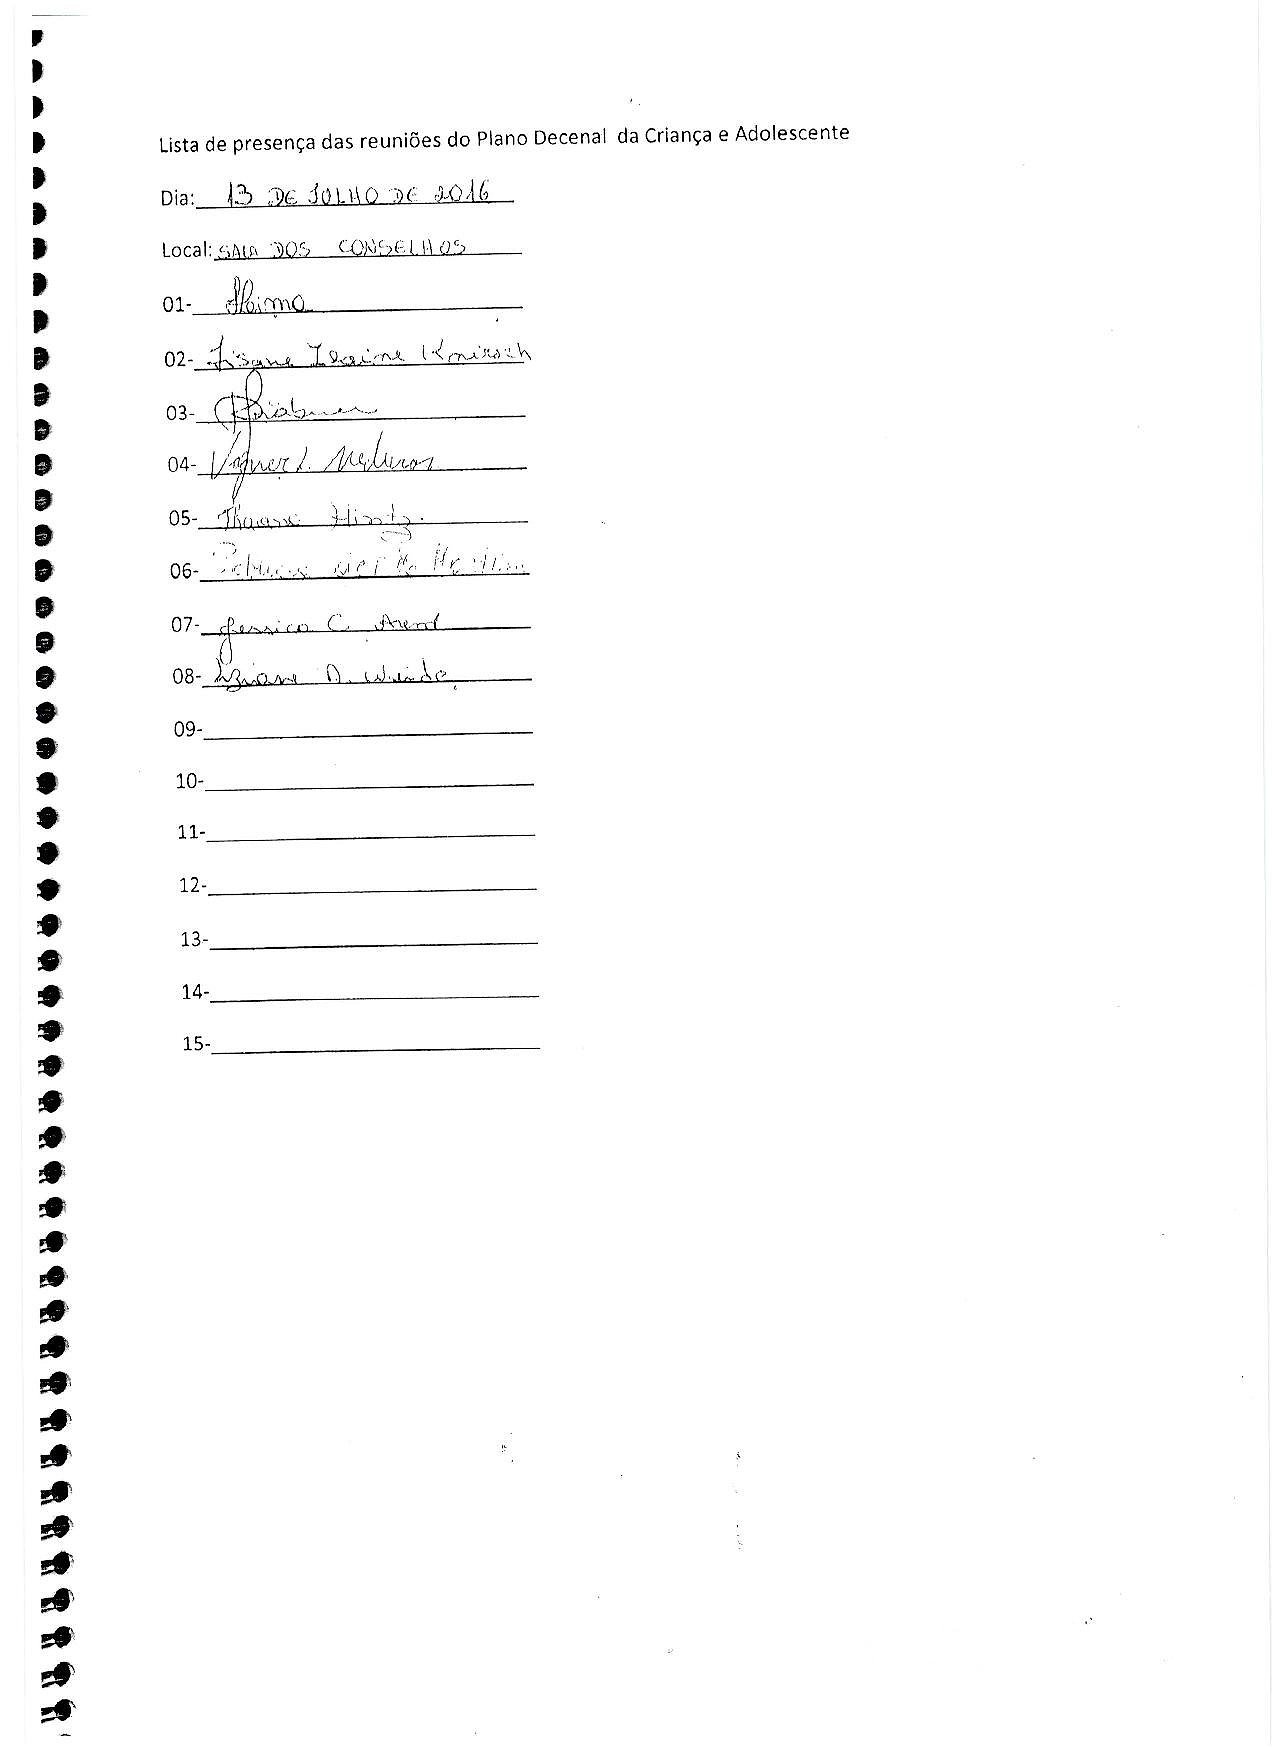 Lista de presença das reuniões do Plano Decenal da Criança e Adolescente
Dia: 13 DE JULHO DE 2016
Local: SALA DOS CONSELHOS
01-
02- Lisane
03-
04- Vagner L. Medeiros
05- Thaane Hintz
06-
07- Jessica C. Arend
08- Liziane D.
09-
10-
11-
12-
13-
14-
15-